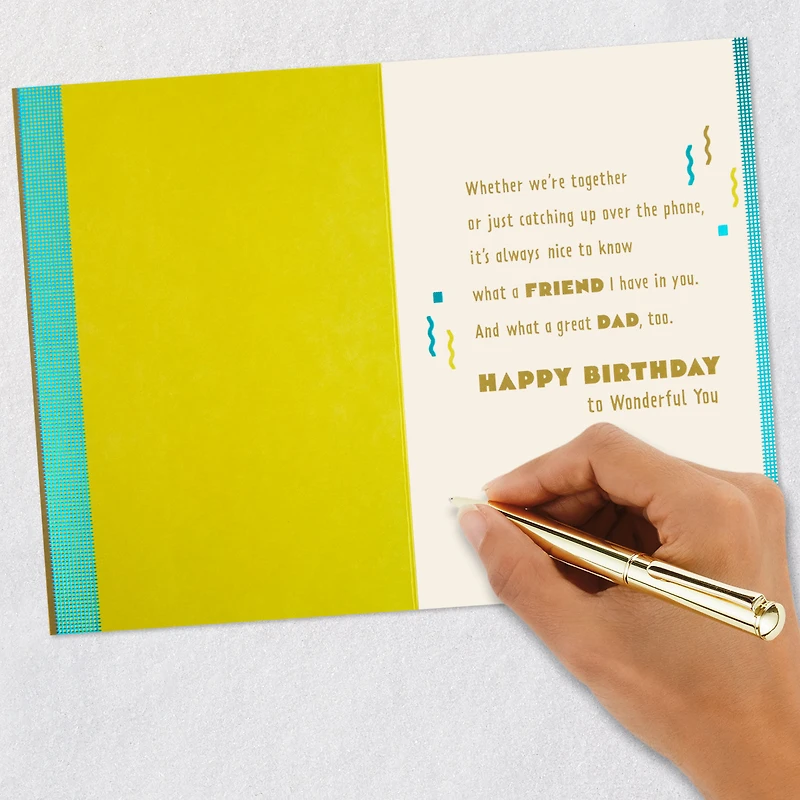 Whether we're together
or just catching up over the phone,
it's always nice to know
what a FRIEND I have in you.
And what a great DAD, too.
HAPPY BIRTHDAY
to Wonderful You